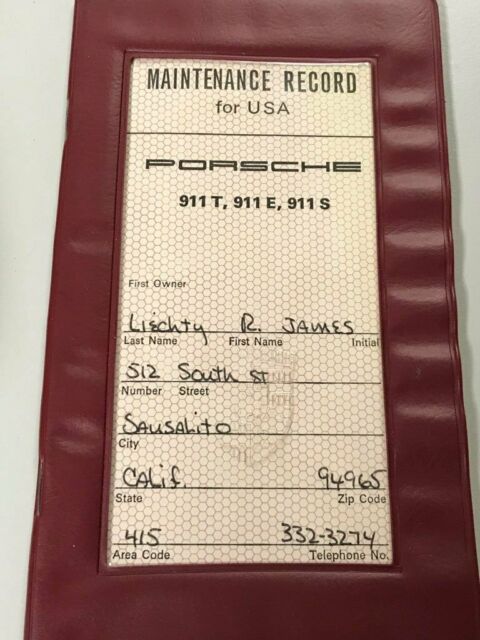 MAINTENANCE RECORD
for USA
PORSCHE
911 T, 911 E, 911 S
First Owner
Liechty R. JAMES
Last Name First Name Initial
512 South St
Number Street
SAUSALITO
City
CALIF. 94965
State Zip Code
415 332-3274
Area Code Telephone No.